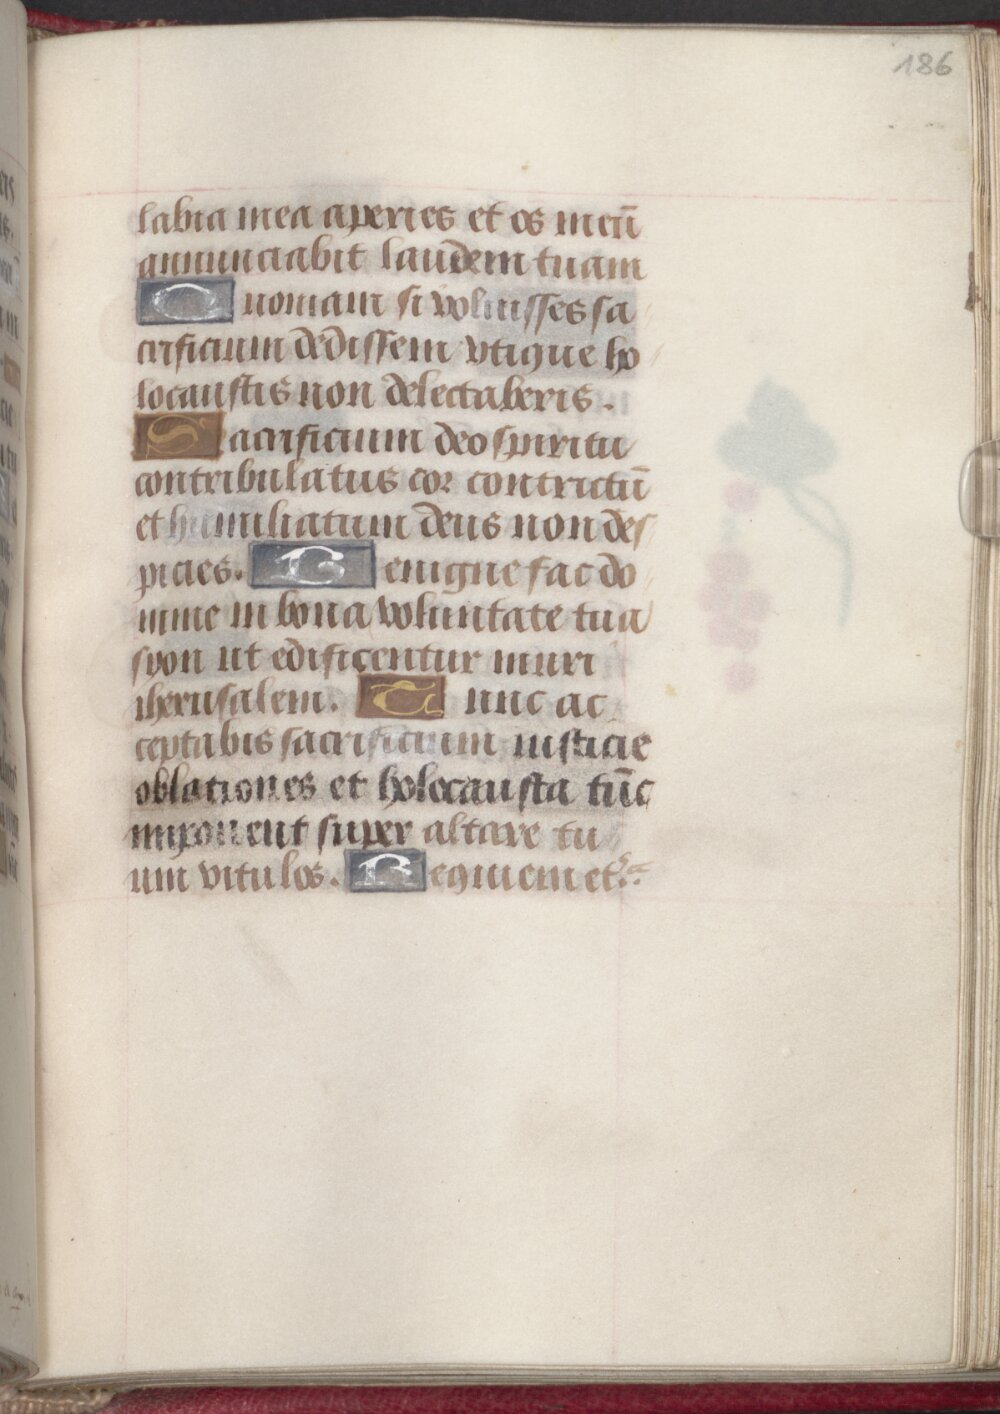 186
labia mea aperies et os meū
annunciabit laudem tuam
Quoniam si voluisses sa
crificium dedissem vtique ho
locaustis non delectaberis.
Sacrificium deo spiritu
contribulatus cor contrictū
et humiliatum deus non des
picies. Benigne fac do
mine in bona voluntate tua
syon ut edificentur muri
iherusalem. Tunc ac
ceptabis sacrificium iusticie
oblationes et holocausta tūc
imponent super altare tu
um vitulos. Requiem et c.